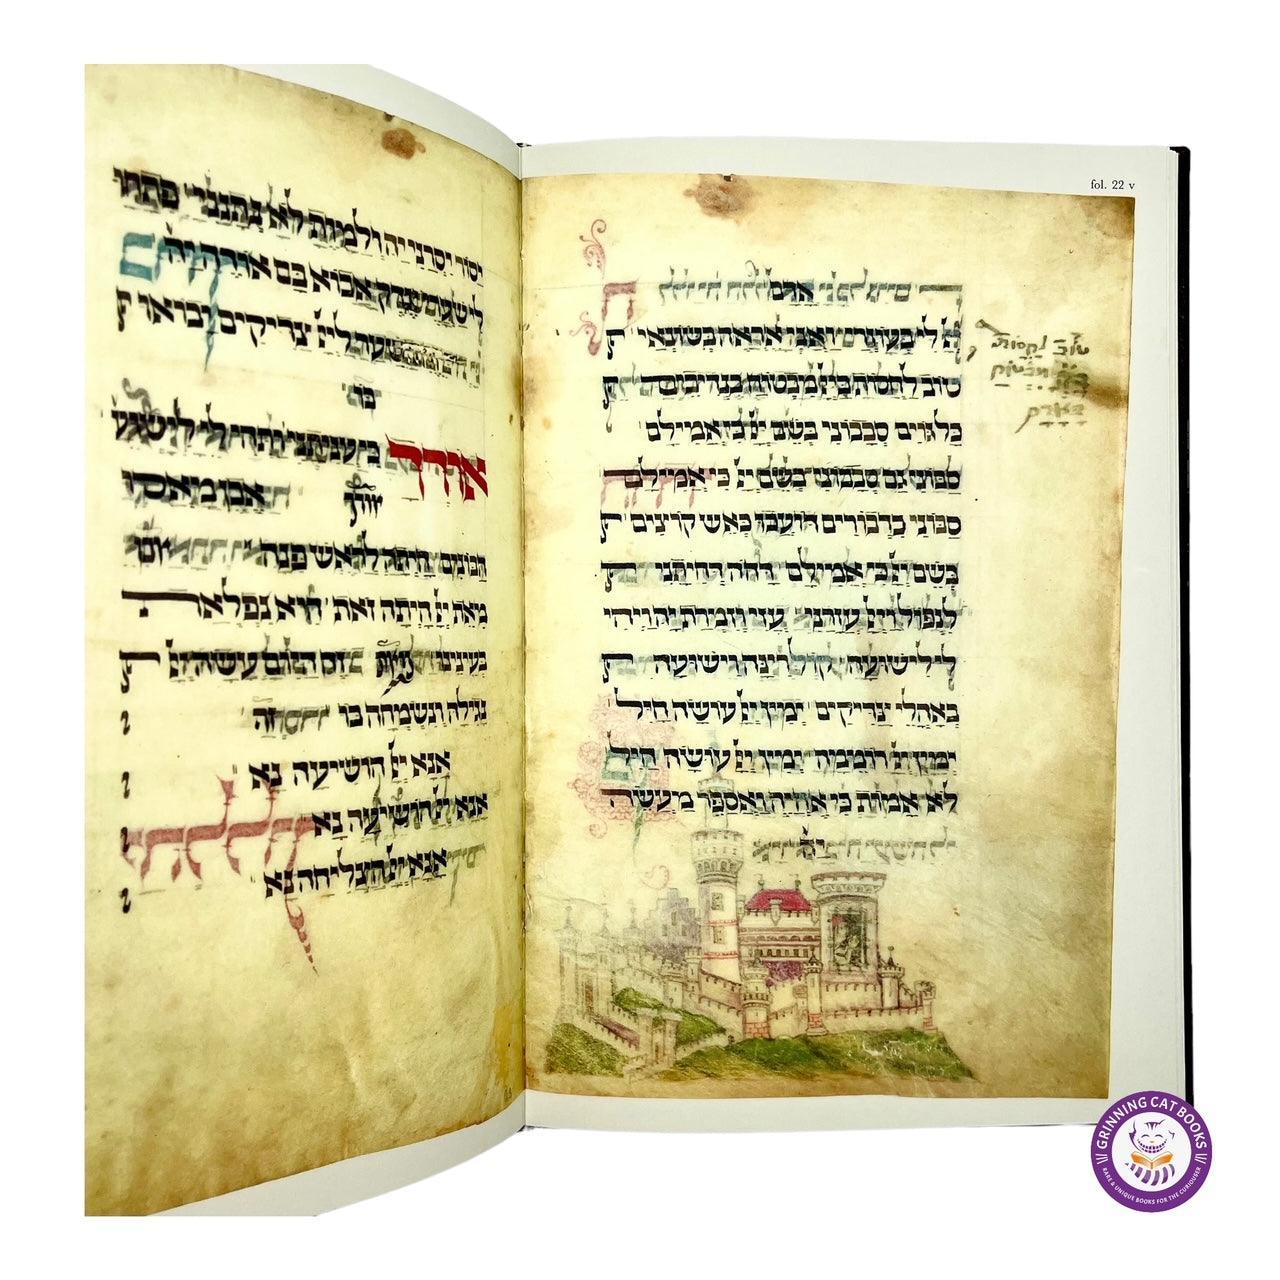 fol. 22 v
אדם
לי בעוזרים ואני אראה בשונאי
טוב לחסות ביי מבטוח בנדיבים
כל גוים סבבוני בשם יי כי אמילם
סבוני גם סבבוני בשם יי כי אמילם
סבוני כדבורים דועכו כאש קוצים
בשם יי כי אמילם דחה דחיתני
לנפול ויי עזרני עזי וזמרת יה ויהי
לי לישועה קול רינה וישועה
באהלי צדיקים ימין יי עושה חיל
ימין יי רוממה ימין יי עושה חיל
לא אמות כי אחיה ואספר מעשה
יה
טוב לחסות
מבטוח
באדם
יסור יסרני יה ולמות לא נתנני פתחו
לי שערי צדק אבוא בם אודה יה
זה השער ליי צדיקים יבואו
בו
אודך כי עניתני ותהי לי לישועה
אבן מאסו
הבונים היתה לראש פנה
מאת יי היתה זאת היא נפלאת
בעינינו זה היום עשה יי
נגילה ונשמחה בו
אנא יי הושיעה נא
אנא יי הושיעה נא
אנא יי הצליחה נא
GRINNING CAT BOOKS
RARE & UNIQUE BOOKS FOR THE CURIOUSER